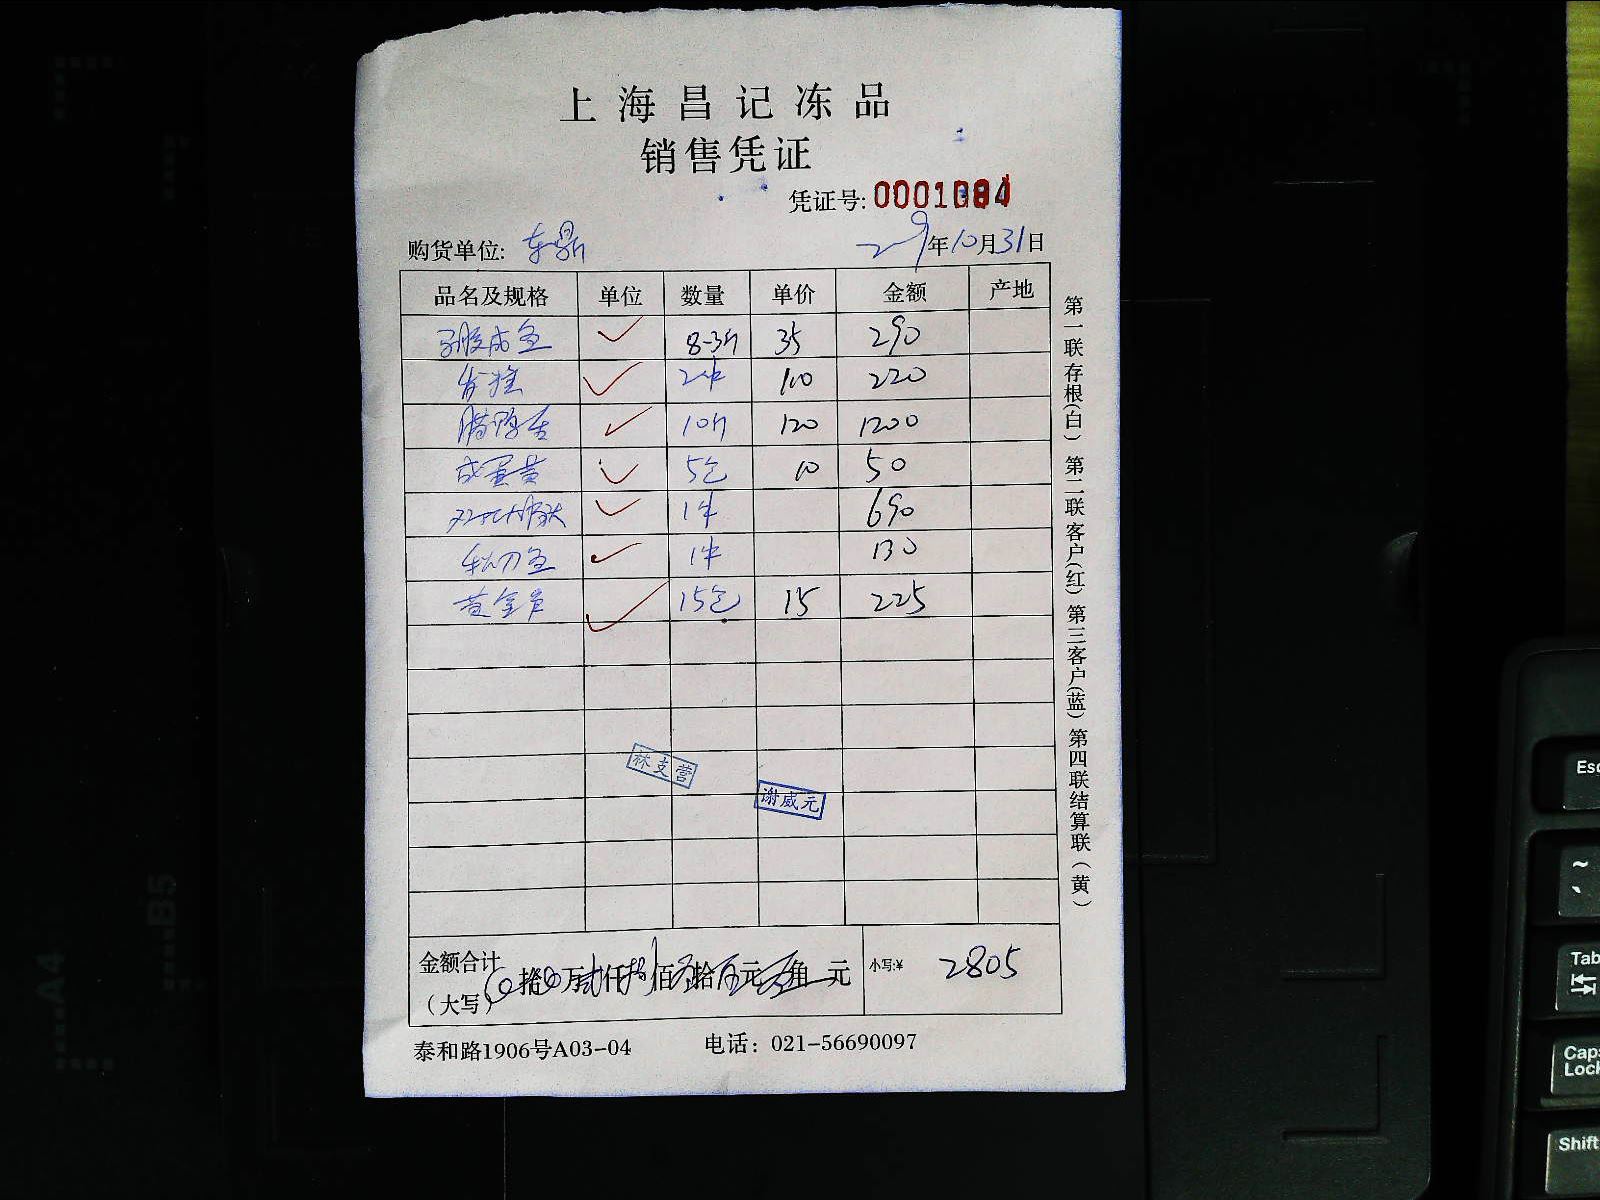 上海昌记冻品
销售凭证
凭证号: 0001084
购货单位: 东鼎 29年10月31日
品名及规格 单位 数量 单价 金额 产地
8-3斤 35 290
2件 110 220
腊鸭舌 10斤 120 1200
咸蛋黄 5包 10 50
1件 690
秋刀鱼 1件 130
黄金 15包 15 225
林支营
谢威元
金额合计
(大写) 拾 万 贰仟捌佰 拾伍元 角 元 小写:¥ 2805
泰和路1906号A03-04 电话: 021-56690097
第一联存根(白) 第二联客户(红) 第三客户(蓝) 第四联结算联(黄)
A4
B5
Esc
~
`
Tab
Caps
Lock
Shift